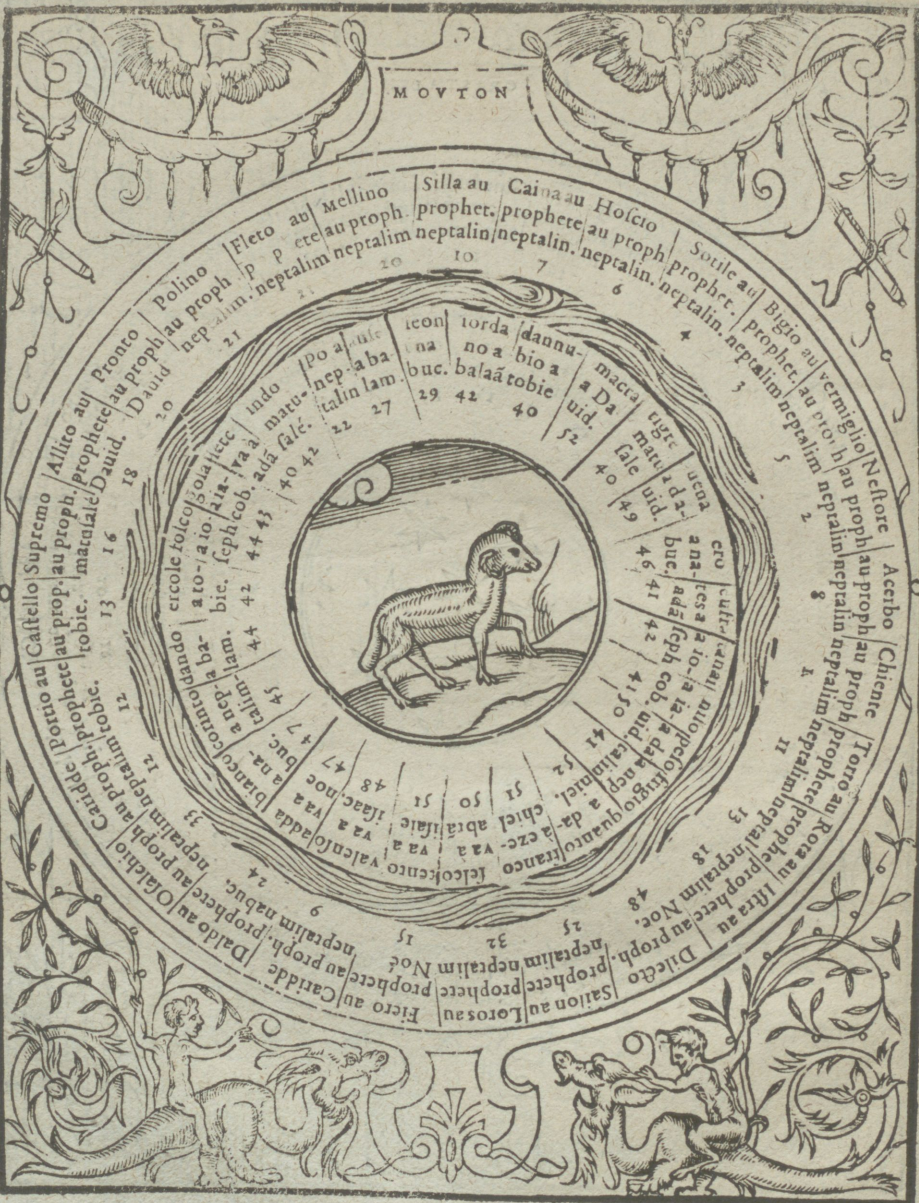 MOVTON
Silla au
prophet.
neptalin
10
Caina au
prophete
neptalin.
7
Hoſcio
au proph
neptalin.
6
Sotile au
prophet.
neptalin.
4
Bigio au
prophet.
neptalim
3
vermiglio
au proph
neptalim
5
Neſtore
au proph
neptalin
2
Acerbo
au proph
neptalin
8
Chiente
au proph
neptalim
Torto au
prophete
neptalim
11
Rota au
prophete
neptal
13
Iſtra au
prophete
neptalim
18
Dilecto
au proph.
Noe.
48
Saiſon au
prophete
neptalim
25
Loros au
prophete
neptalim
32
Fiero au
prophete
Noé
15
Caridde
au proph.
neptalim
9
Daldo au
prophete
nabuc.
24
Oſalchio
au proph
neptalim
33
Caridde
au proph
neptalim
12
Porrio au
prophete
tobie.
12
Caſtello
au prop.
tobie.
13
Supremo
au proph.
matuſalé
16
Allito au
prophete
Dauid.
18
Pronto
au proph
Dauid
20
Polino
au proph
21
Fleto au
neptalim
Mellino
au proph.
neptalim
20
leon
na
buc.
29
iorda
no a
balaã
42
dannu-
bio a
tobie
40
macra
a Da
uid.
52
tigre
a
matu
ſale
40
a da-
uid.
49
ero
a na-
buc.
46
a
adã
41
a io-
ſeph
42
a ia-
cob.
41
nilo
a da
uid.
50
peſo
a nep
talin
41
frigio
a da-
niel.
52
quanto
a eze-
chiel
51
franco
va a
abrã
50
ſelce
va a
iſaie
51
cento
va a
iſaac.
48
valenſo
va a
noe
47
adda
bianco
a na-
buc.
47
corinto
a nep-
talim
45
roidando
a ba-
lam.
44
ercole
a to-
bie.
42
folco
a io-
ſeph
44
a ia-
cob.
43
lete
va a
adã
40
indo
a
matu-
ſalé.
42
po a
nep-
talin
22
a ba
lam.
27